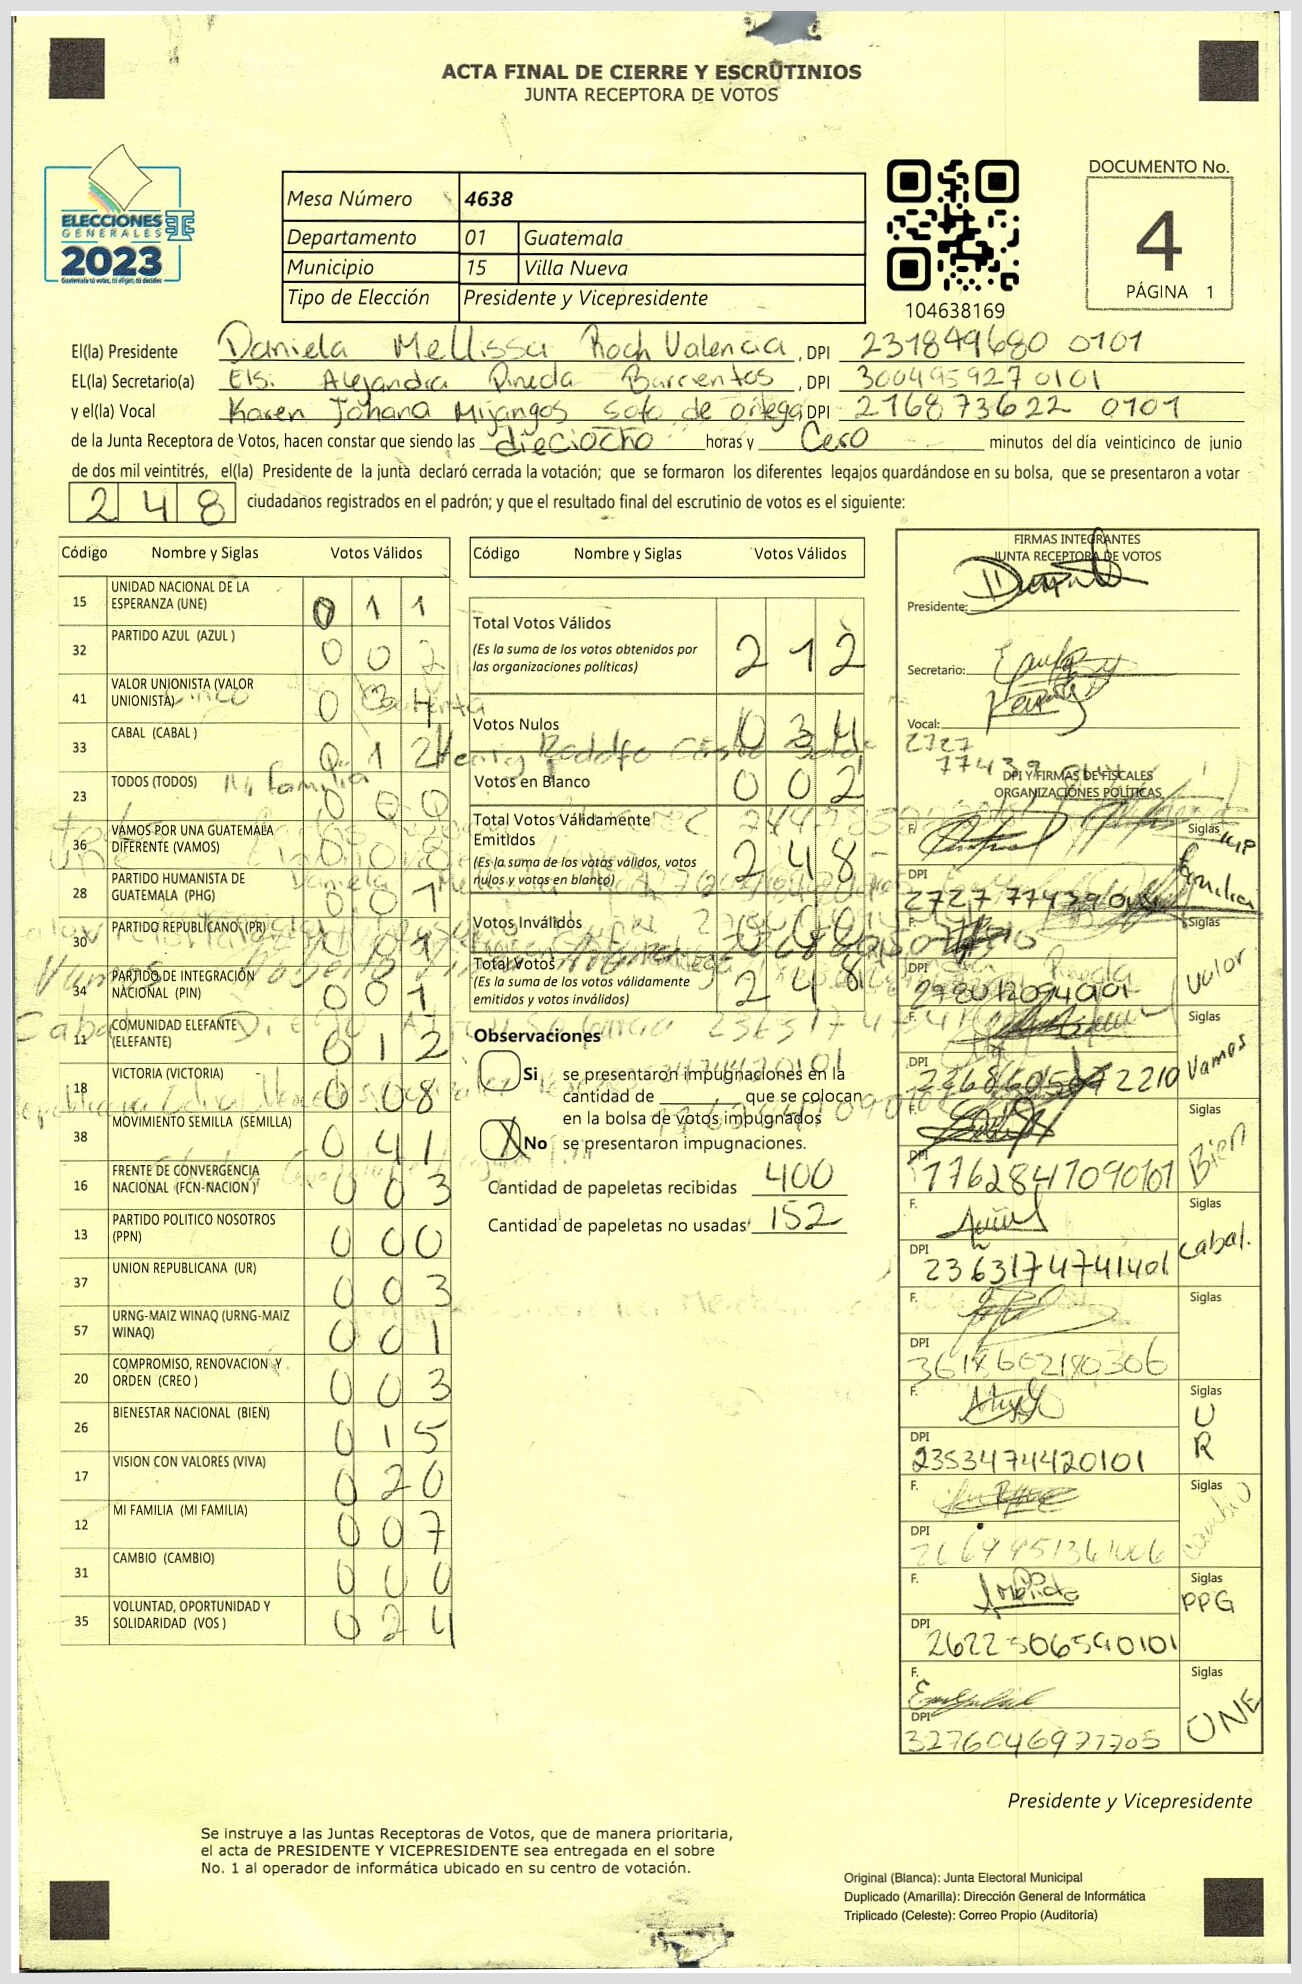 ACTA FINAL DE CIERRE Y ESCRUTINIOS
JUNTA RECEPTORA DE VOTOS
ELECCIONES
GENERALES
2023
Guatemala tú votas, tú eliges, tú decides
Mesa Número 4638
Departamento 01 Guatemala
Municipio 15 Villa Nueva
Tipo de Elección Presidente y Vicepresidente
104638169
DOCUMENTO No.
4
PÁGINA 1
El(la) Presidente Daniela Mellissa Roch Valencia, DPI 231849680 0101
EL(la) Secretario(a) Elsi Alejandra Pineda Barrientos, DPI 3004959270101
y el(la) Vocal Karen Johana Mijangos Soto de Ortega DPI 216873622 0101
de la Junta Receptora de Votos, hacen constar que siendo las dieciocho horas y Cero minutos del día veinticinco de junio
de dos mil veintitrés, el(la) Presidente de la junta declaró cerrada la votación; que se formaron los diferentes legajos guardándose en su bolsa, que se presentaron a votar
248 ciudadanos registrados en el padrón; y que el resultado final del escrutinio de votos es el siguiente:
Código Nombre y Siglas Votos Válidos
15 UNIDAD NACIONAL DE LA ESPERANZA (UNE) 0 1 1
32 PARTIDO AZUL (AZUL ) 0 0 2
41 VALOR UNIONISTA (VALOR UNIONISTA) 0 3 4
33 CABAL (CABAL ) 0 1 2
23 TODOS (TODOS) 0 0 0
36 VAMOS POR UNA GUATEMALA DIFERENTE (VAMOS) 0 0 8
28 PARTIDO HUMANISTA DE GUATEMALA (PHG) 0 0 1
30 PARTIDO REPUBLICANO (PR) 0 0 1
34 PARTIDO DE INTEGRACIÓN NACIONAL (PIN) 0 0 1
11 COMUNIDAD ELEFANTE (ELEFANTE) 0 1 2
18 VICTORIA (VICTORIA) 0 0 8
38 MOVIMIENTO SEMILLA (SEMILLA) 0 4 1
16 FRENTE DE CONVERGENCIA NACIONAL (FCN-NACION ) 0 0 3
13 PARTIDO POLITICO NOSOTROS (PPN) 0 0 0
37 UNION REPUBLICANA (UR) 0 0 3
57 URNG-MAIZ WINAQ (URNG-MAIZ WINAQ) 0 0 1
20 COMPROMISO, RENOVACION Y ORDEN (CREO ) 0 0 3
26 BIENESTAR NACIONAL (BIEN) 0 1 5
17 VISION CON VALORES (VIVA) 0 2 0
12 MI FAMILIA (MI FAMILIA) 0 0 7
31 CAMBIO (CAMBIO) 0 0 0
35 VOLUNTAD, OPORTUNIDAD Y SOLIDARIDAD (VOS ) 0 2 4
Código Nombre y Siglas Votos Válidos
Total Votos Válidos 2 1 2
(Es la suma de los votos obtenidos por
las organizaciones políticas)
Votos Nulos 0 3 4
Votos en Blanco 0 0 2
Total Votos Válidamente
Emitidos 2 4 8
(Es la suma de los votos válidos, votos
nulos y votos en blanco)
Votos Inválidos 0 0 0
Total Votos 2 4 8
(Es la suma de los votos válidamente
emitidos y votos inválidos)
Observaciones
Si se presentaron impugnaciones en la
cantidad de ______ que se colocan
en la bolsa de votos impugnados
X No se presentaron impugnaciones.
Cantidad de papeletas recibidas 400
Cantidad de papeletas no usadas 152
FIRMAS INTEGRANTES
JUNTA RECEPTORA DE VOTOS
Presidente:
Secretario:
Vocal:
2727
77439
DPI Y FIRMAS DE FISCALES
ORGANIZACIONES POLÍTICAS
F. Siglas MP Familia
DPI
F. Siglas Valor
DPI
F. Siglas Vamos
DPI
F. Siglas Bien
DPI 1762841090101
F. Siglas Cabal.
DPI 2363174741401
F. Siglas
DPI 3618602180306
F. Siglas U R
DPI 2353474420101
F. Siglas Cambio
DPI
F. Siglas PPG
DPI 2622506590101
F. Siglas UNE
DPI
Presidente y Vicepresidente
Se instruye a las Juntas Receptoras de Votos, que de manera prioritaria,
el acta de PRESIDENTE Y VICEPRESIDENTE sea entregada en el sobre
No. 1 al operador de informática ubicado en su centro de votación.
Original (Blanca): Junta Electoral Municipal
Duplicado (Amarilla): Dirección General de Informática
Triplicado (Celeste): Correo Propio (Auditoría)